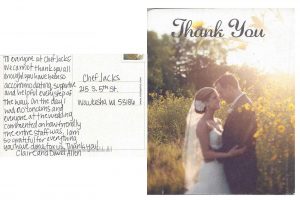 To everyone at Chef Jacks
We cannot thank you all
enough you have been so
accommodating, supportive
and helpful every step of
the way. On the day I
had no concerns and
everyone at the wedding
commented on how friendly
the entire staff was. I am
so grateful for everything
you have done for us. Thank you!
Claire and David Allen
Chef Jacks
215 S. 5th St.
Waukesha WI 53186
Thank You